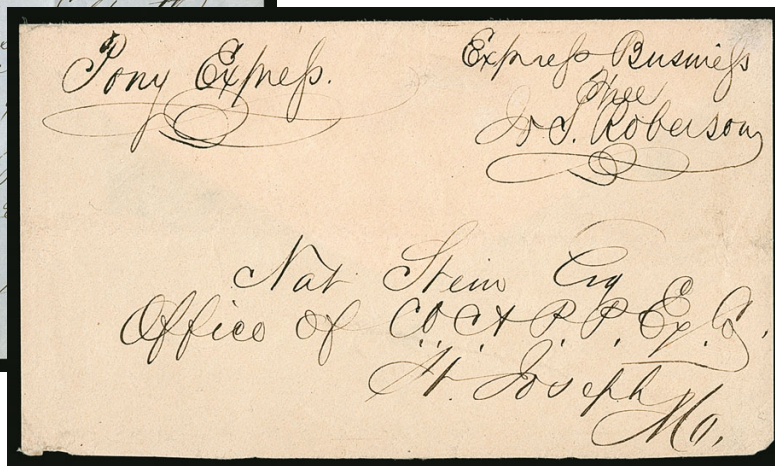 Pony Express.
Express Business
Free
J. S. Roberson
Nat Stein Esq
Office of C.O.C. & P.P. Ex. Co.
St. Joseph
Mo.